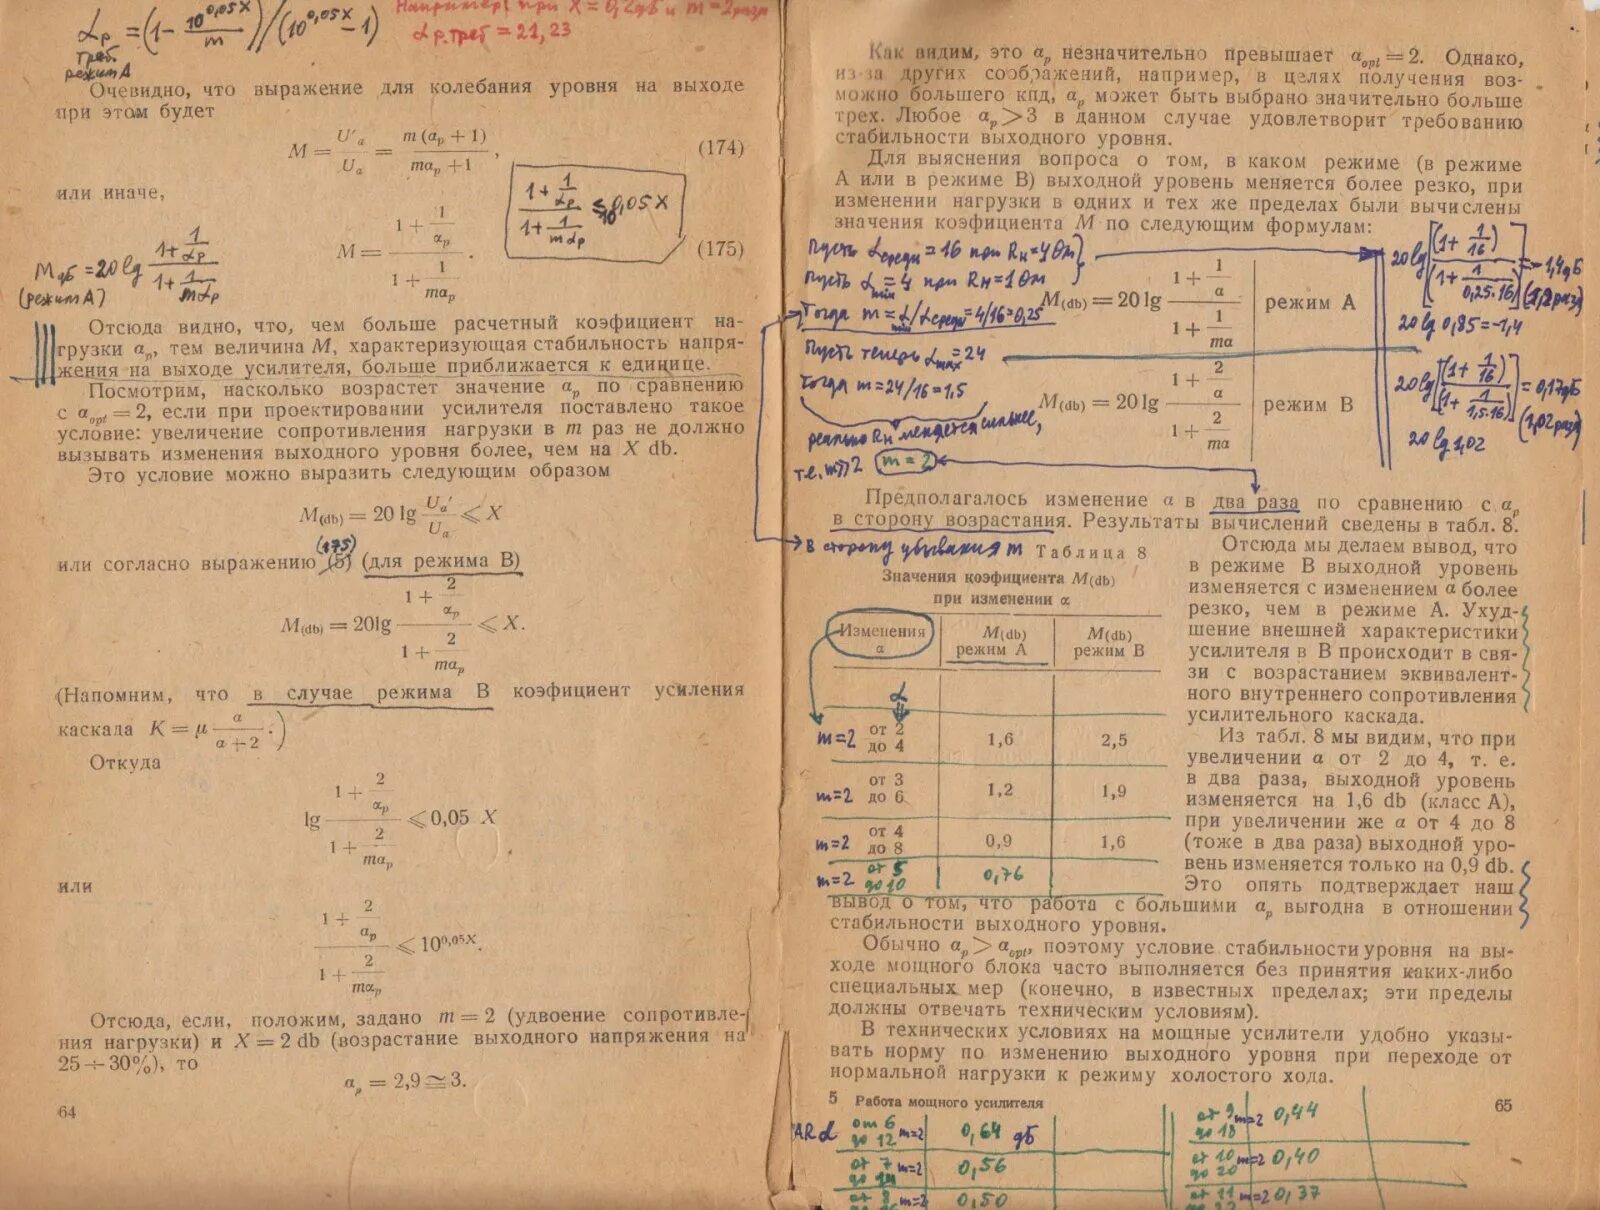 αр = (1 − 10^0,05X / m) / (10^0,05X − 1)
треб
режим А
Например, при X = 0,2дБ и m = 2раз
αр.треб = 21,23
Очевидно, что выражение для колебания уровня на выходе
при этом будет
M = U′a / Ua = m (aр + 1) / (maр + 1), (174)
или иначе,
M = (1 + 1/aр) / (1 + 1/maр). (175)
(1 + 1/αр) / (1 + 1/mαр) ≤ 10^0,05X
MдБ = 20 lg (1 + 1/αр) / (1 + 1/mαр)
(режим А)
Отсюда видно, что, чем больше расчетный коэфициент на-
грузки aр, тем величина M, характеризующая стабильность напря-
жения на выходе усилителя, больше приближается к единице.
Посмотрим, насколько возрастет значение aр по сравнению
с aopt = 2, если при проектировании усилителя поставлено такое
условие: увеличение сопротивления нагрузки в m раз не должно
вызывать изменения выходного уровня более, чем на X db.
Это условие можно выразить следующим образом
M(db) = 20 lg Ua′ / Ua ⩽ X
(175)
или согласно выражению (5) (для режима В)
M(db) = 20lg (1 + 2/aр) / (1 + 2/maр) ⩽ X.
(Напомним, что в случае режима В коэфициент усиления
каскада K = μ a / (a + 2).)
Откуда
lg (1 + 2/aр) / (1 + 2/maр) ⩽ 0,05 X
или
(1 + 2/aр) / (1 + 2/maр) ⩽ 10^0,05X.
Отсюда, если, положим, задано m = 2 (удвоение сопротивле-
ния нагрузки) и X = 2 db (возрастание выходного напряжения на
25 ÷ 30%), то
aр = 2,9 ≅ 3.
64
Как видим, это aр незначительно превышает aopt = 2. Однако,
из-за других соображений, например, в целях получения воз-
можно большего кпд, aр может быть выбрано значительно больше
трех. Любое aр > 3 в данном случае удовлетворит требованию
стабильности выходного уровня.
Для выяснения вопроса о том, в каком режиме (в режиме
А или в режиме В) выходной уровень меняется более резко, при
изменении нагрузки в одних и тех же пределах были вычислены
значения коэфициента M по следующим формулам:
Пусть αсредн = 16 при Rн = 4 Ом
Пусть αmin = 4 при Rн = 1 Ом
Тогда m = αmin/αсредн = 4/16 = 0,25
Пусть теперь αmax = 24
Тогда m = 24/16 = 1,5
реально Rн меняется сильнее,
т.е. m⩾2 m = 2
M(db) = 20 lg (1 + 1/a) / (1 + 1/ma) режим А
M(db) = 20 lg (1 + 2/a) / (1 + 2/ma) режим В
20 lg [(1 + 1/16) / (1 + 1/0,25·16)] = −1,4дБ
(1,2 раз)
20 lg 0,85 = −1,4
20 lg [(1 + 1/16) / (1 + 1/1,5·16)] = 0,17дБ
(1,02 раз)
20 lg 1,02
Предполагалось изменение a в два раза по сравнению с aр
в сторону возрастания. Результаты вычислений сведены в табл. 8.
В сторону убывания m
Таблица 8
Значения коэфициента M(db)
при изменении a
Изменения a | M(db) режим А | M(db) режим В
α
m=2 от 2 до 4 | 1,6 | 2,5
m=2 от 3 до 6 | 1,2 | 1,9
m=2 от 4 до 8 | 0,9 | 1,6
m=2 от 5 до 10 | 0,76
Отсюда мы делаем вывод, что
в режиме В выходной уровень
изменяется с изменением a более
резко, чем в режиме А. Ухуд-
шение внешней характеристики
усилителя в В происходит в свя-
зи с возрастанием эквивалент-
ного внутреннего сопротивления
усилительного каскада.
Из табл. 8 мы видим, что при
увеличении a от 2 до 4, т. е.
в два раза, выходной уровень
изменяется на 1,6 db (класс А),
при увеличении же a от 4 до 8
(тоже в два раза) выходной уро-
вень изменяется только на 0,9 db.
Это опять подтверждает наш
вывод о том, что работа с большими aр выгодна в отношении
стабильности выходного уровня.
Обычно aр > aopt, поэтому условие стабильности уровня на вы-
ходе мощного блока часто выполняется без принятия каких-либо
специальных мер (конечно, в известных пределах; эти пределы
должны отвечать техническим условиям).
В технических условиях на мощные усилители удобно указы-
вать норму по изменению выходного уровня при переходе от
нормальной нагрузки к режиму холостого хода.
5 Работа мощного усилителя
65
α от 6 до 12 m=2 | 0,64 дБ
от 7 до 14 m=2 | 0,56
от 8 m=2 | 0,50
от 9 до 18 m=2 0,44
от 10 до 20 m=2 0,40
от 11 m=2 0,37